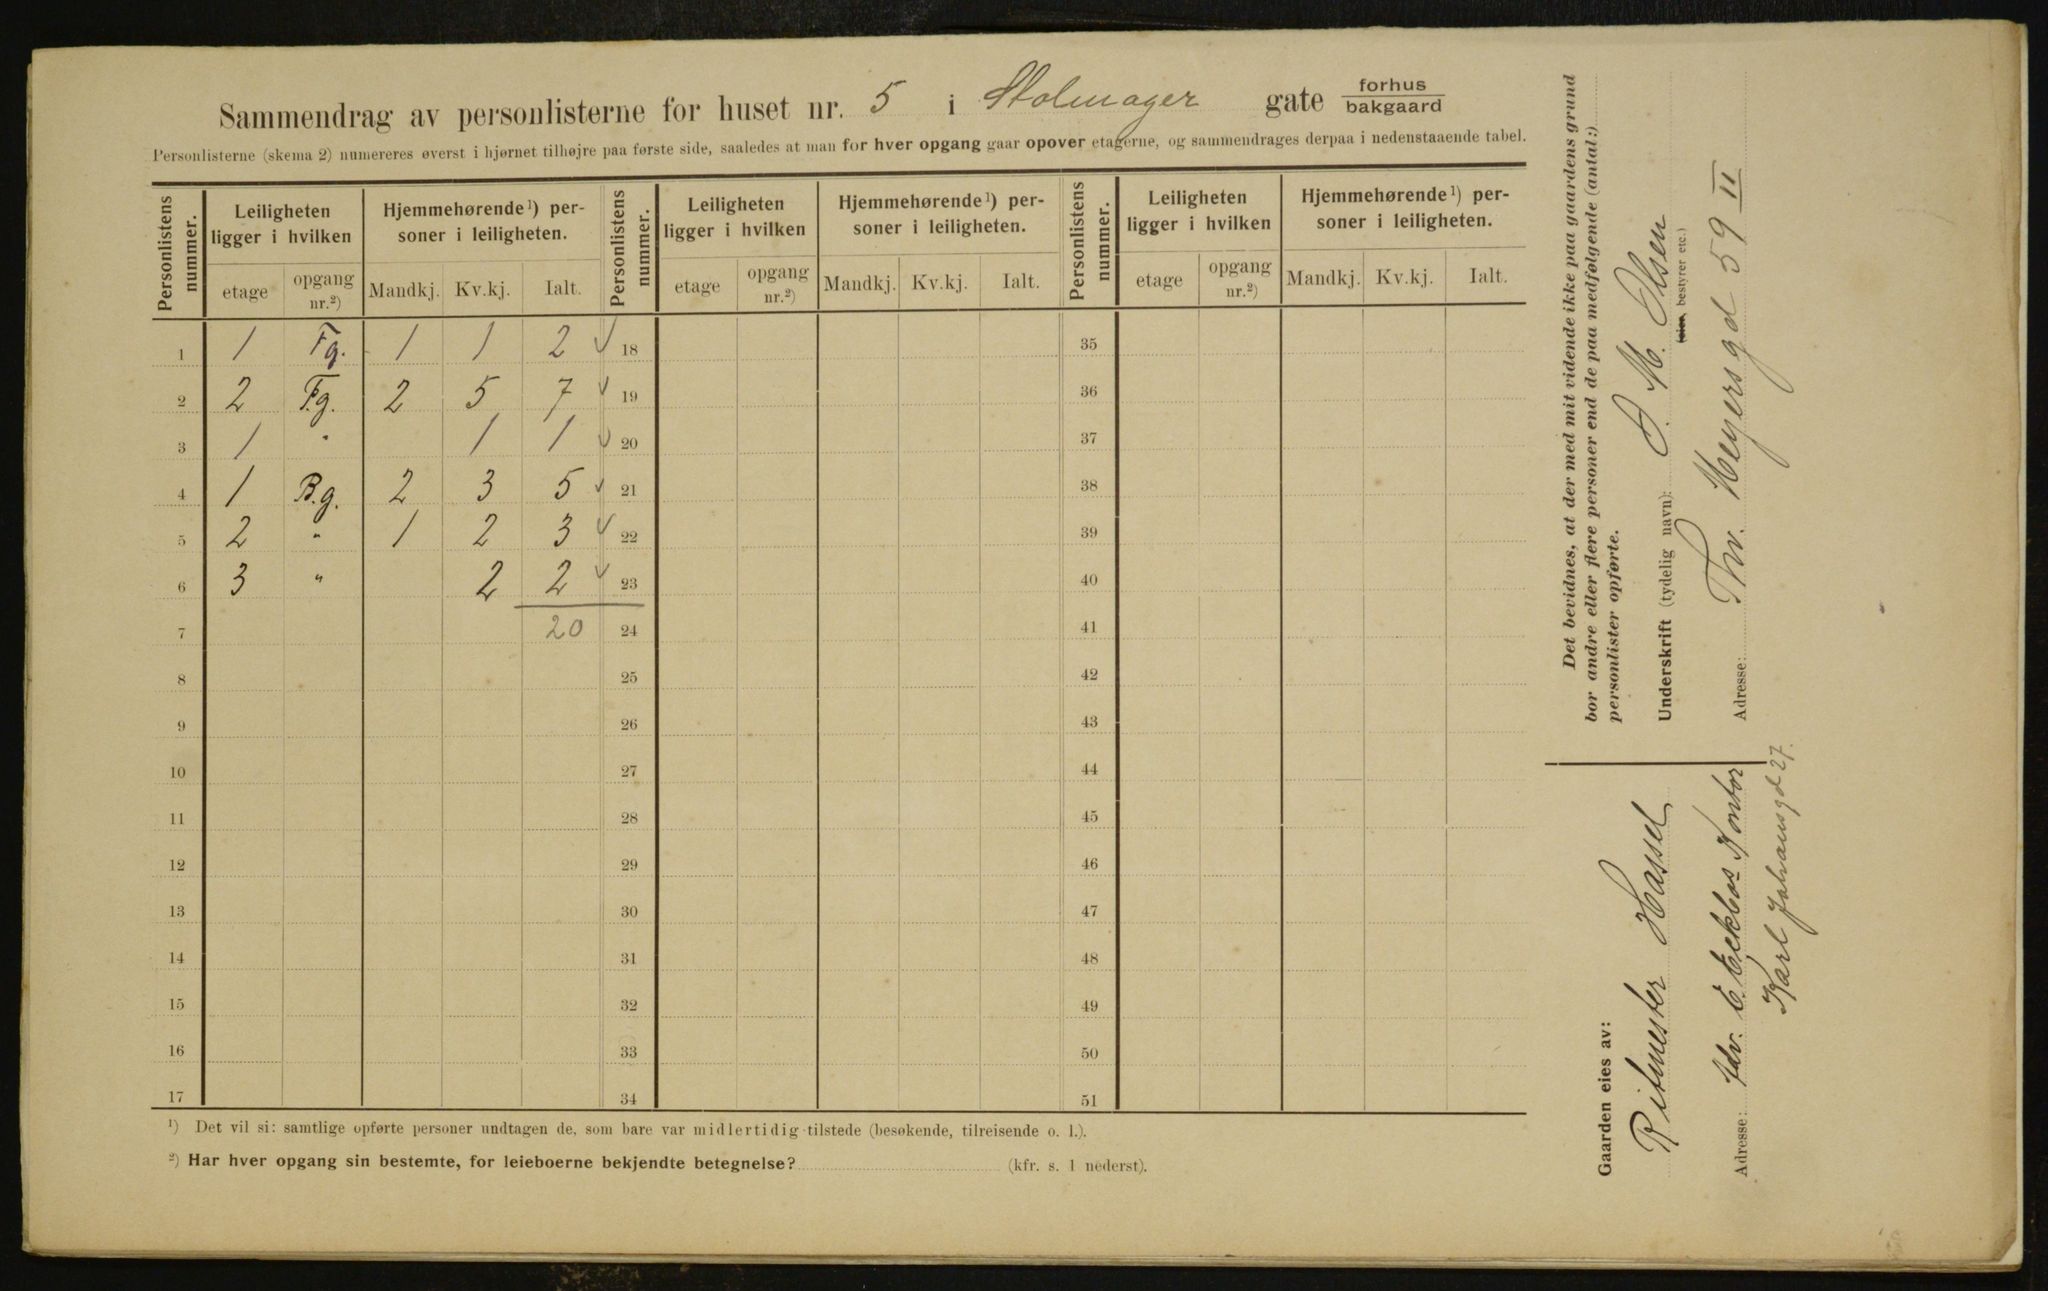 Sammendrag av personlisterne for huset nr. 5 i Stolmager gate forhus
bakgaard
Personlisterne (skema 2) numereres øverst i hjørnet tilhøjre paa første side, saaledes at man for hver opgang gaar opover etagerne, og sammendrages derpaa i nedenstaaende tabel.
Personlistens nummer. Leiligheten ligger i hvilken Hjemmehørende ¹) personer i leiligheten. Personlistens nummer. Leiligheten ligger i hvilken Hjemmehørende ¹) personer i leiligheten. Personlistens nummer. Leiligheten ligger i hvilken Hjemmehørende ¹) personer i leiligheten.
etage opgang nr.²) Mandkj. Kv.kj. Ialt. etage opgang nr.²) Mandkj. Kv.kj. Ialt. etage opgang nr.²) Mandkj. Kv.kj. Ialt.
1 1 Fg. 1 1 2 ✓ 18 35
2 2 F.g. 2 5 7 ✓ 19 36
3 1 " 1 1 ✓ 20 37
4 1 B.g. 2 3 5 ✓ 21 38
5 2 " 1 2 3 ✓ 22 39
6 3 " 2 2 ✓ 23 40
7 20 24 41
8 25 42
9 26 43
10 27 44
11 28 45
12 29 46
13 30 47
14 31 48
15 32 49
16 33 50
17 34 51
¹) Det vil si: samtlige opførte personer undtagen de, som bare var midlertidig tilstede (besøkende, tilreisende o. l.).
²) Har hver opgang sin bestemte, for leieboerne bekjendte betegnelse? (kfr. s. 1 nederst).
Det bevidnes, at der med mit vidende ikke paa gaardens grund
bor andre eller flere personer end de paa medfølgende (antal:)
personlister opførte.
Underskrift (tydelig navn): O. M. Olsen
eier, bestyrer etc.)
Adresse: Thv. Meyersgd 59 II
Gaarden eies av:
Ritmester Hassel
Adresse: Adv. E. Eckbos Kontor
Karl Johansgd 27.